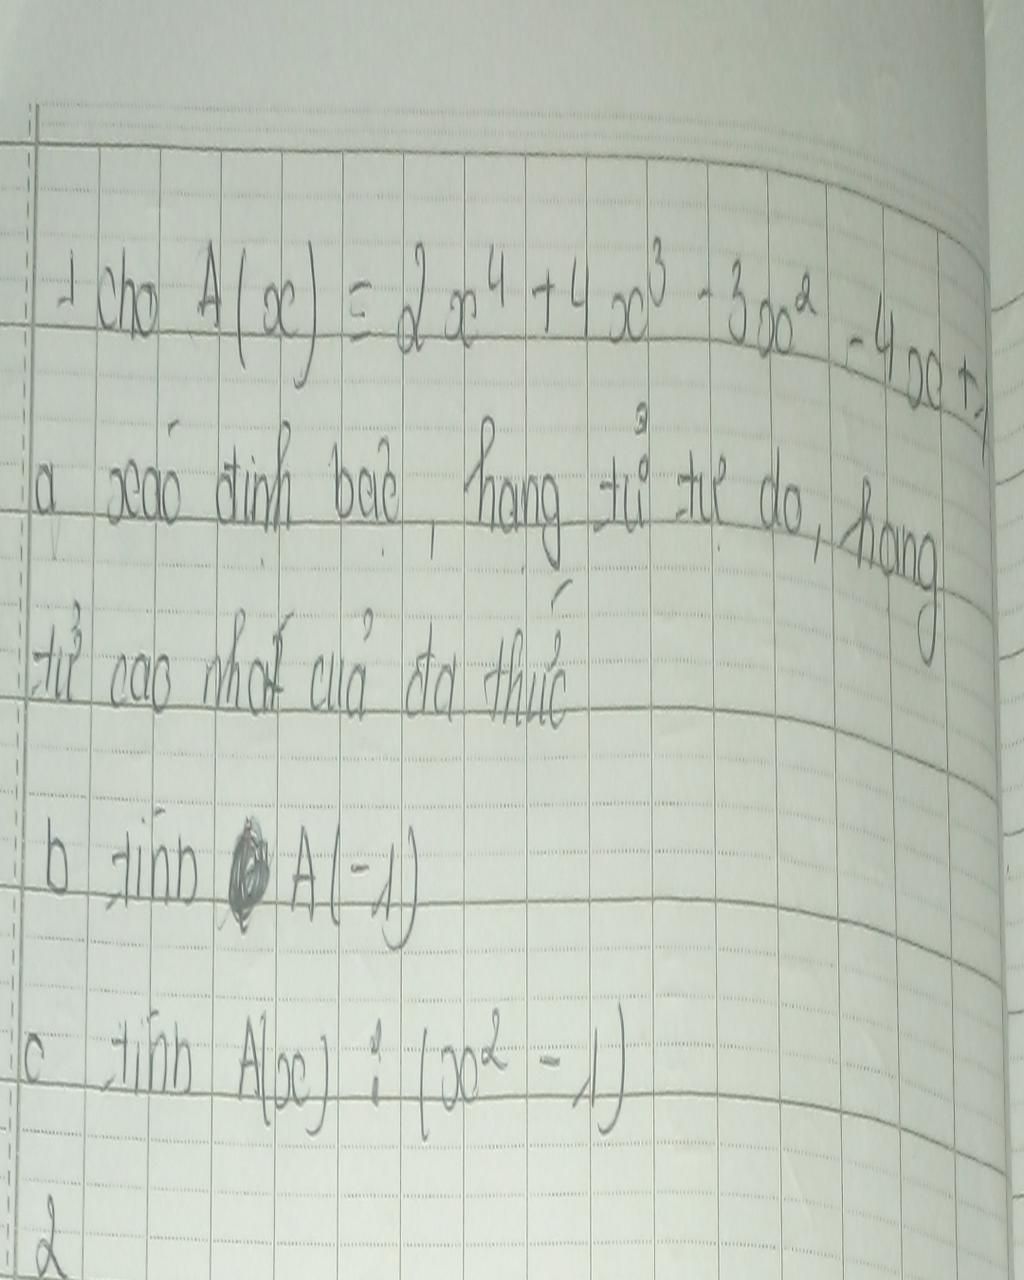 1 cho A(x) = 2x⁴ + 4x³ - 3x² - 4x + 1
a xác định bậc, hạng tử tự do, hạng
tử cao nhất của đa thức
b tính A(-1)
c tính A(x) : (x² - 1)
2